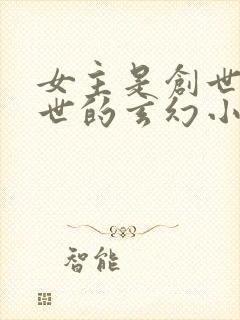 女主是創世
世的玄幻小
智能